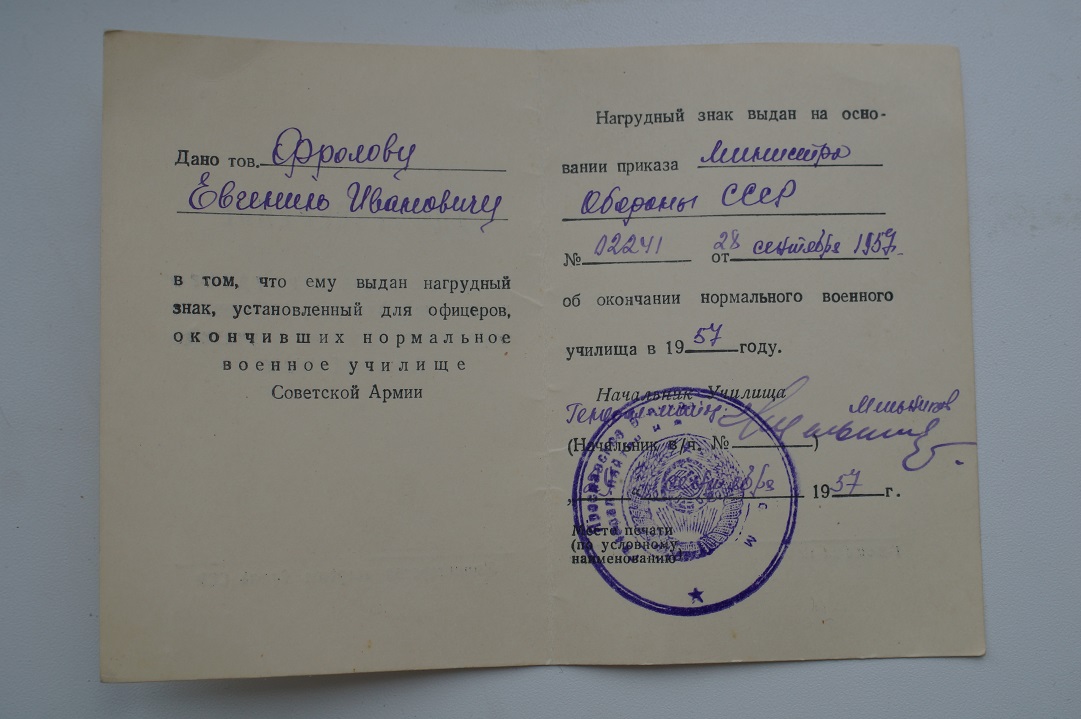 Дано тов. Фролову
Евгению Ивановичу
в том, что ему выдан нагрудный
знак, установленный для офицеров,
окончивших нормальное
военное училище
Советской Армии
Нагрудный знак выдан на осно-
вании приказа Министра
Обороны СССР
№ 02241 от 28 сентября 1957.
об окончании нормального военного
училища в 1957 году.
Начальник Училища
Мельников
(Начальник в/ч. № )
1957 г.
Место печати
(по условному
наименованию)